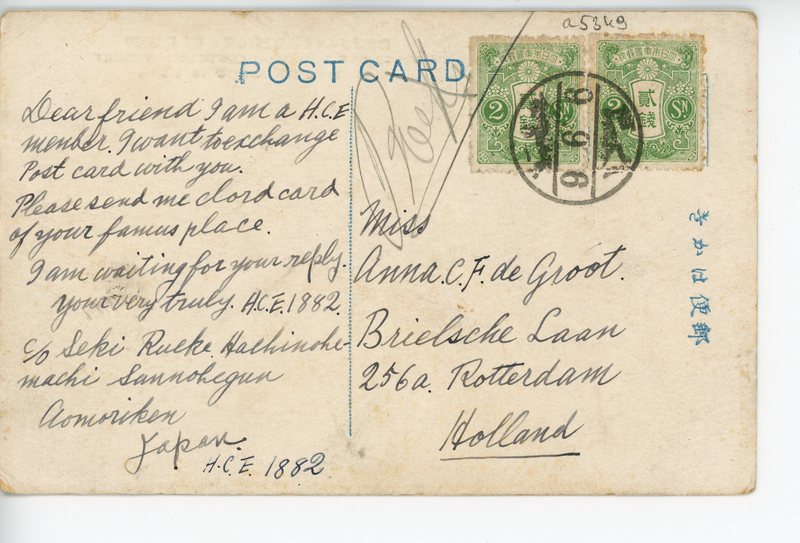 a5349
POST CARD
2 貳錢 Sn
2 貳錢 Sn
9 6 6
Dear friend I am a H.C.E
member. I want to exchange
Post card with you.
Please send me clord card
of your famus place.
I am waiting for your reply.
your very truly. H.C.E. 1882.
c/o Seki Rueke Hachinohe-
machi Sannohegun
Aomoriken
Japan.
H.C.E. 1882.
Miss
Anna. C. F. de Groot.
Brielsche Laan
256a. Rotterdam
Holland
きかは便郵